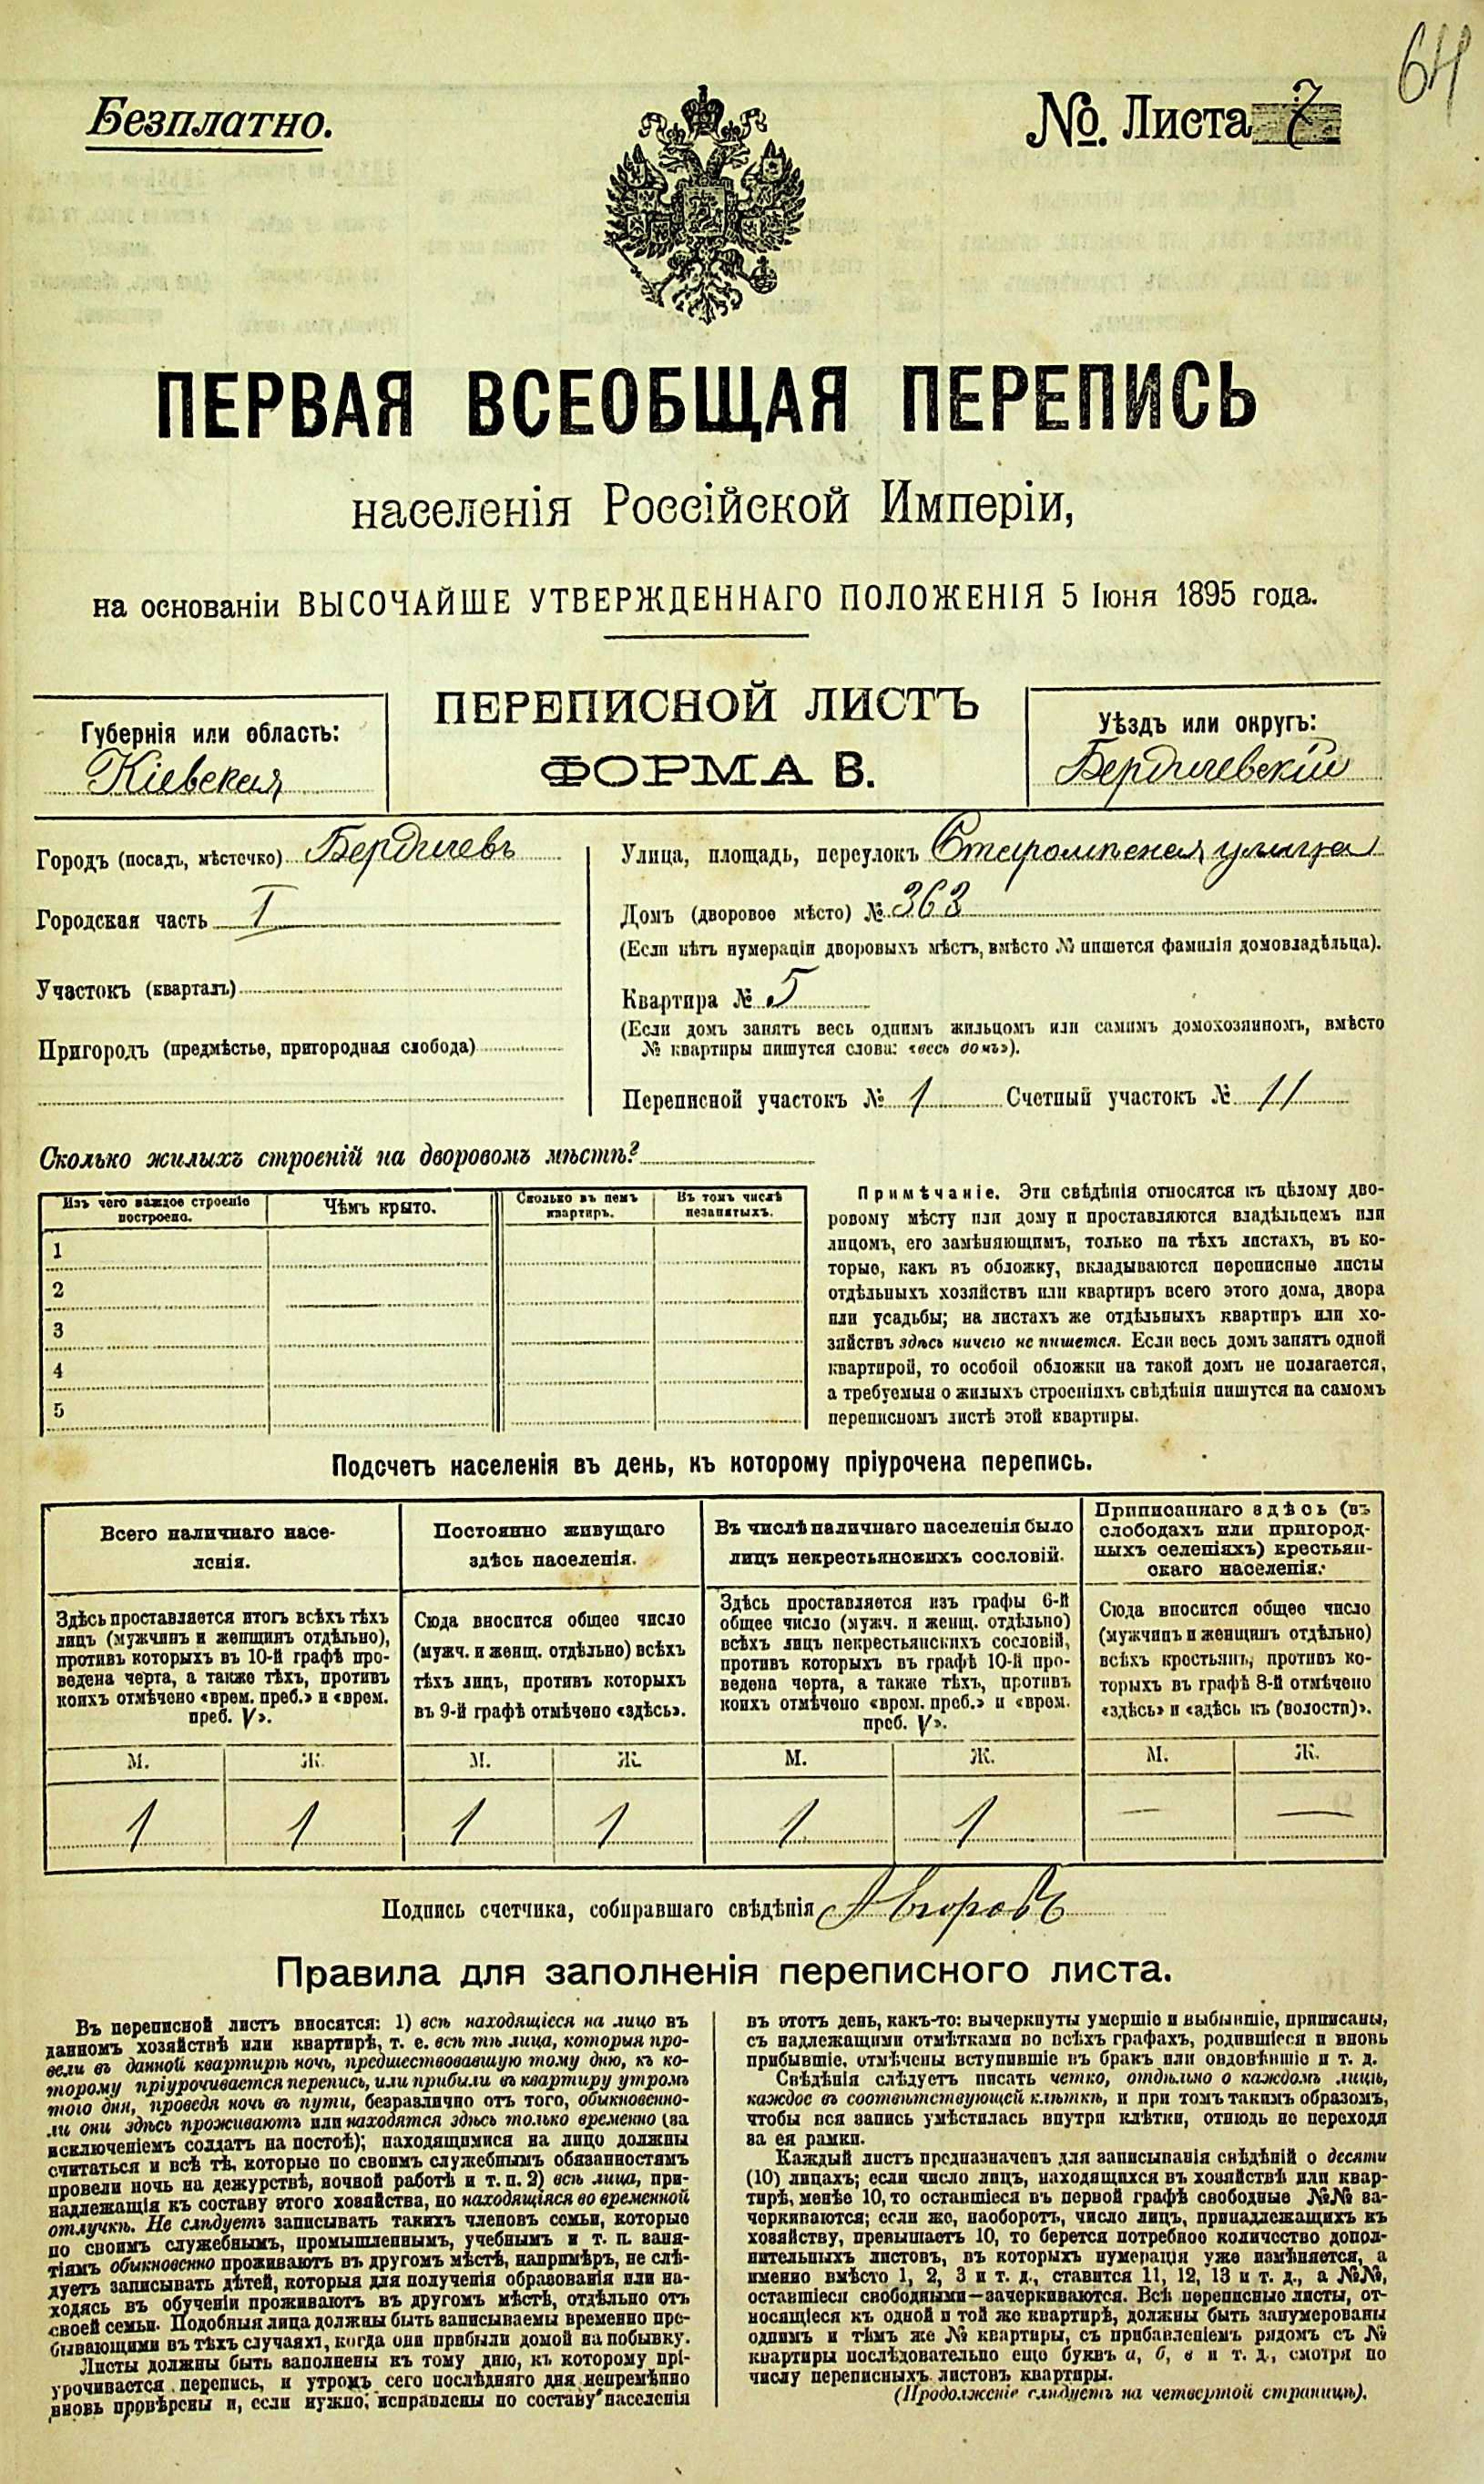 64
Безплатно.
№. Листа 7
ПЕРВАЯ ВСЕОБЩАЯ ПЕРЕПИСЬ
населенія Россійской Имперіи,
на основаніи ВЫСОЧАЙШЕ УТВЕРЖДЕННАГО ПОЛОЖЕНІЯ 5 Іюня 1895 года.
ПЕРЕПИСНОЙ ЛИСТЪ
ФОРМА В.
Губернія или область:
Кіевская
Уѣздъ или округъ:
Бердичевскій
Городъ (посадъ, мѣстечко) Бердичевъ
Городская часть I
Участокъ (кварталъ)
Пригородъ (предмѣстье, пригородная слобода)
Улица, площадь, переулокъ улица
Домъ (дворовое мѣсто) № 363
(Если нѣтъ нумераціи дворовыхъ мѣстъ, вмѣсто № пишется фамилія домовладѣльца).
Квартира № 5
(Если домъ занятъ весь однимъ жильцомъ или самимъ домохозяиномъ, вмѣсто
№ квартиры пишутся слова: «весь домъ»).
Переписной участокъ № 1 Счетный участокъ № 11
Сколько жилыхъ строеній на дворовомъ мѣстѣ?
Изъ чего каждое строеніе
построено.
Чѣмъ крыто.
Сколько въ немъ
квартиръ.
Въ томъ числѣ
незанятыхъ.
1
2
3
4
5
Примѣчаніе. Эти свѣдѣнія относятся къ цѣлому дво-
ровому мѣсту или дому и проставляются владѣльцемъ или
лицомъ, его замѣняющимъ, только на тѣхъ листахъ, въ ко-
торые, какъ въ обложку, вкладываются переписные листы
отдѣльныхъ хозяйствъ или квартиръ всего этого дома, двора
или усадьбы; на листахъ же отдѣльныхъ квартиръ или хо-
зяйствъ здѣсь ничего не пишется. Если весь домъ занятъ одной
квартирой, то особой обложки на такой домъ не полагается,
а требуемыя о жилыхъ строеніяхъ свѣдѣнія пишутся на самомъ
переписномъ листѣ этой квартиры.
Подсчетъ населенія въ день, къ которому пріурочена перепись.
Всего наличнаго насе-
ленія.
Здѣсь проставляется итогъ всѣхъ тѣхъ
лицъ (мужчинъ и женщинъ отдѣльно),
противъ которыхъ въ 10-й графѣ про-
ведена черта, а также тѣхъ, противъ
коихъ отмѣчено «врем. преб.» и «врем.
преб. V».
Постоянно живущаго
здѣсь населенія.
Сюда вносится общее число
(мужч. и женщ. отдѣльно) всѣхъ
тѣхъ лицъ, противъ которыхъ
въ 9-й графѣ отмѣчено «здѣсь».
Въ числѣ наличнаго населенія было
лицъ некрестьянскихъ сословій.
Здѣсь проставляется изъ графы 6-й
общее число (мужч. и женщ. отдѣльно)
всѣхъ лицъ некрестьянскихъ сословій,
противъ которыхъ въ графѣ 10-й про-
ведена черта, а также тѣхъ, противъ
коихъ отмѣчено «врем. преб.» и «врем.
преб. V».
Приписаннаго здѣсь (въ
слободахъ или пригород-
ныхъ селеніяхъ) крестьян-
скаго населенія.
Сюда вносится общее число
(мужчинъ и женщинъ отдѣльно)
всѣхъ крестьянъ, противъ ко-
торыхъ въ графѣ 8-й отмѣчено
«здѣсь» и «здѣсь къ (волости)».
М. Ж. М. Ж. М. Ж. М. Ж.
1 1 1 1 1 1 — —
Подпись счетчика, собиравшаго свѣдѣнія
Правила для заполненія переписного листа.
Въ переписной листъ вносятся: 1) всѣ находящіеся на лицо въ
данномъ хозяйствѣ или квартирѣ, т. е. всѣ тѣ лица, которыя про-
вели въ данной квартирѣ ночь, предшествовавшую тому дню, къ ко-
торому пріурочивается перепись, или прибыли въ квартиру утромъ
того дня, проведя ночь въ пути, безразлично отъ того, обыкновенно-
ли они здѣсь проживаютъ или находятся здѣсь только временно (за
исключеніемъ солдатъ на постоѣ); находящимися на лицо должны
считаться и всѣ тѣ, которые по своимъ служебнымъ обязанностямъ
провели ночь на дежурствѣ, ночной работѣ и т. п. 2) всѣ лица, при-
надлежащія къ составу этого хозяйства, но находящіяся во временной
отлучкѣ. Не слѣдуетъ записывать такихъ членовъ семьи, которые
по своимъ служебнымъ, промышленнымъ, учебнымъ и т. п. заня-
тіямъ обыкновенно проживаютъ въ другомъ мѣстѣ, напримѣръ, не слѣ-
дуетъ записывать дѣтей, которыя для полученія образованія или на-
ходясь въ обученіи проживаютъ въ другомъ мѣстѣ, отдѣльно отъ
своей семьи. Подобныя лица должны быть записываемы временно пре-
бывающими въ тѣхъ случаяхъ, когда они прибыли домой на побывку.
Листы должны быть заполнены къ тому дню, къ которому прі-
урочивается перепись, и утромъ сего послѣдняго дня непремѣнно
вновь провѣрены и, если нужно, исправлены по составу населенія
въ этотъ день, какъ-то: вычеркнуты умершіе и выбывшіе, приписаны,
съ надлежащими отмѣтками по всѣхъ графахъ, родившіеся и вновь
прибывшіе, отмѣчены вступившіе въ бракъ или овдовѣвшіе и т. д.
Свѣдѣнія слѣдуетъ писать четко, отдѣльно о каждомъ лицѣ,
каждое въ соотвѣтствующей клѣткѣ, и при томъ такимъ образомъ,
чтобы вся запись умѣстилась внутри клѣтки, отнюдь не переходя
за ея рамки.
Каждый листъ предназначенъ для записыванія свѣдѣній о десяти
(10) лицахъ; если число лицъ, находящихся въ хозяйствѣ или квар-
тирѣ, менѣе 10, то оставшіеся въ первой графѣ свободные №№ за-
черкиваются; если же, наоборотъ, число лицъ, принадлежащихъ къ
хозяйству, превышаетъ 10, то берется потребное количество допол-
нительныхъ листовъ, въ которыхъ нумерація уже измѣняется, а
именно вмѣсто 1, 2, 3 и т. д., ставится 11, 12, 13 и т. д., а №№,
оставшіеся свободными—зачеркиваются. Всѣ переписные листы, от-
носящіеся къ одной и той же квартирѣ, должны быть занумерованы
однимъ и тѣмъ же № квартиры, съ прибавленіемъ рядомъ съ №
квартиры послѣдовательно еще буквъ а, б, в и т. д., смотря по
числу переписныхъ листовъ квартиры.
(Продолженіе слѣдуетъ на четвертой страницѣ).